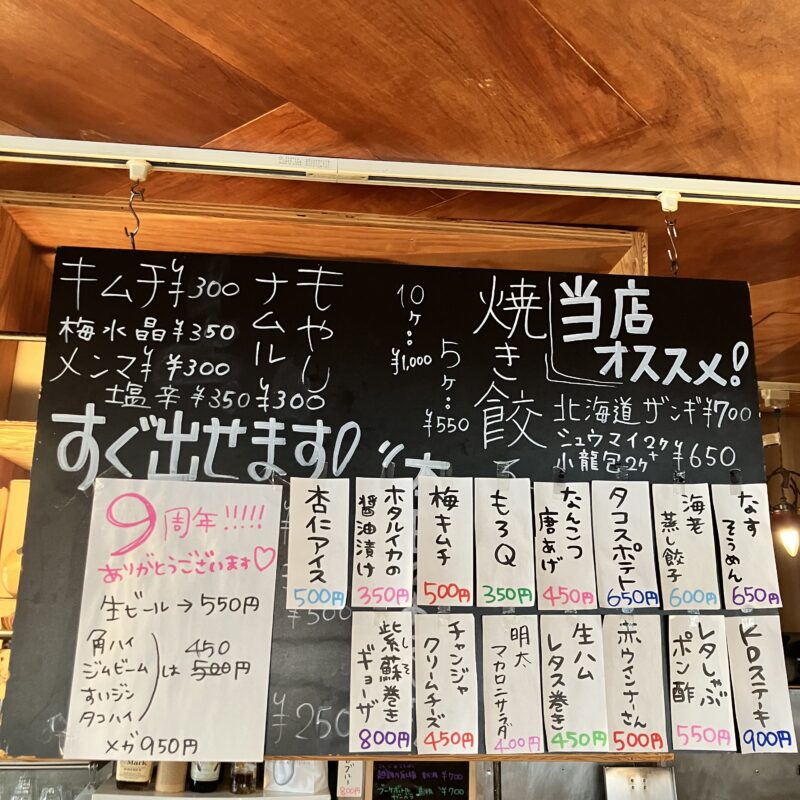 当店
オススメ!
北海道ザンギ¥700
シュウマイ2ヶ+
小龍包2ヶ ¥650
焼き餃
5ヶ:
¥550
10ヶ:
¥1,000
もやし
ナムル
¥300
キムチ¥300
梅水晶¥350
メンマ¥300
塩辛¥350
すぐ出せます!
9周年!!!!!
ありがとうございます♡
生ビール→550円
角ハイ
ジムビーム
すいジン
タコハイ
は 450
500円
メガ950円
なす
そうめん
650円
海老
蒸し餃子
600円
タコスポテト
650円
なんこつ
唐あげ
450円
もろQ
350円
梅キムチ
500円
ホタルイカの
醤油漬け
350円
杏仁アイス
500円
KDステーキ
900円
レタしゃぶ
ポン酢
550円
赤ウインナーさん
500円
生ハム
レタス巻き
450円
明太
マカロニサラダ
400円
チャンジャ
クリームチーズ
450円
しそ
紫蘇巻き
ギョーザ
800円
¥500
¥250
800円
¥700
¥700